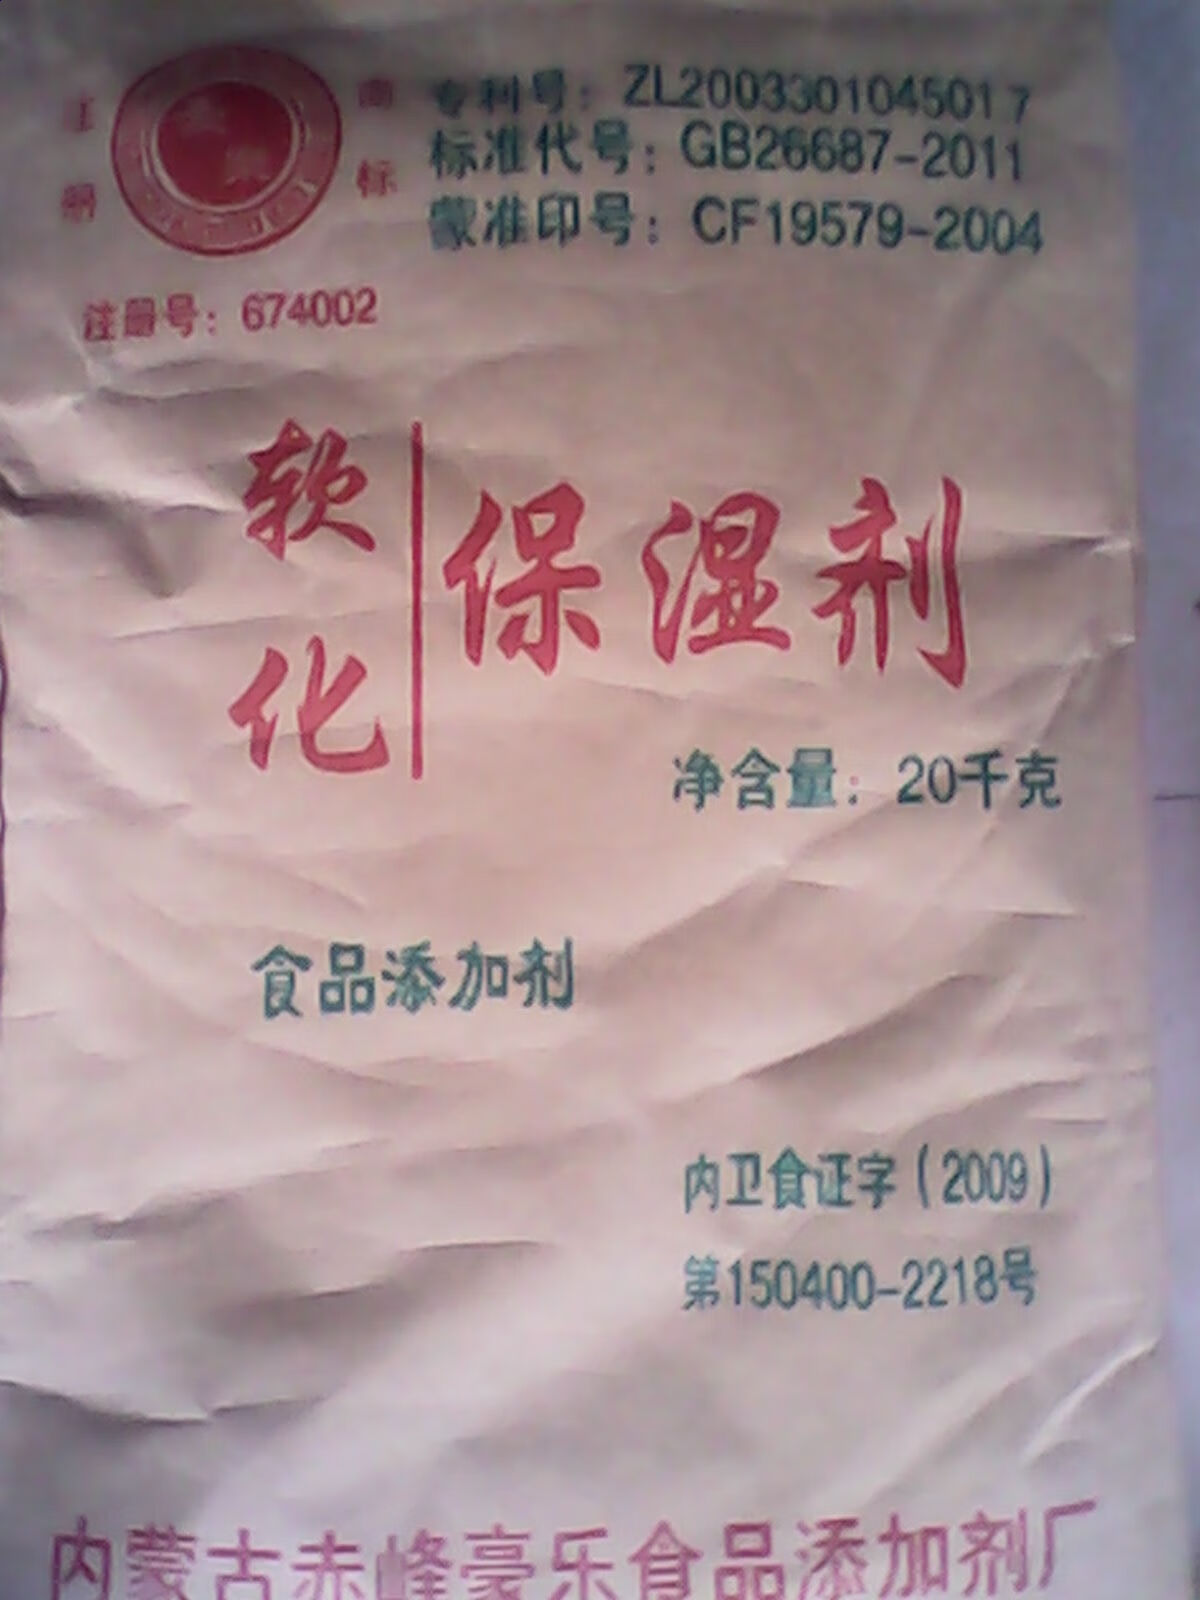 注册
商标
专利号：ZL2003301045017
标准代号：GB26687-2011
蒙准印号：CF19579-2004
注册号：674002
软化
保湿剂
净含量：20千克
食品添加剂
内卫食证字（2009）
第150400-2218号
内蒙古赤峰豪乐食品添加剂厂